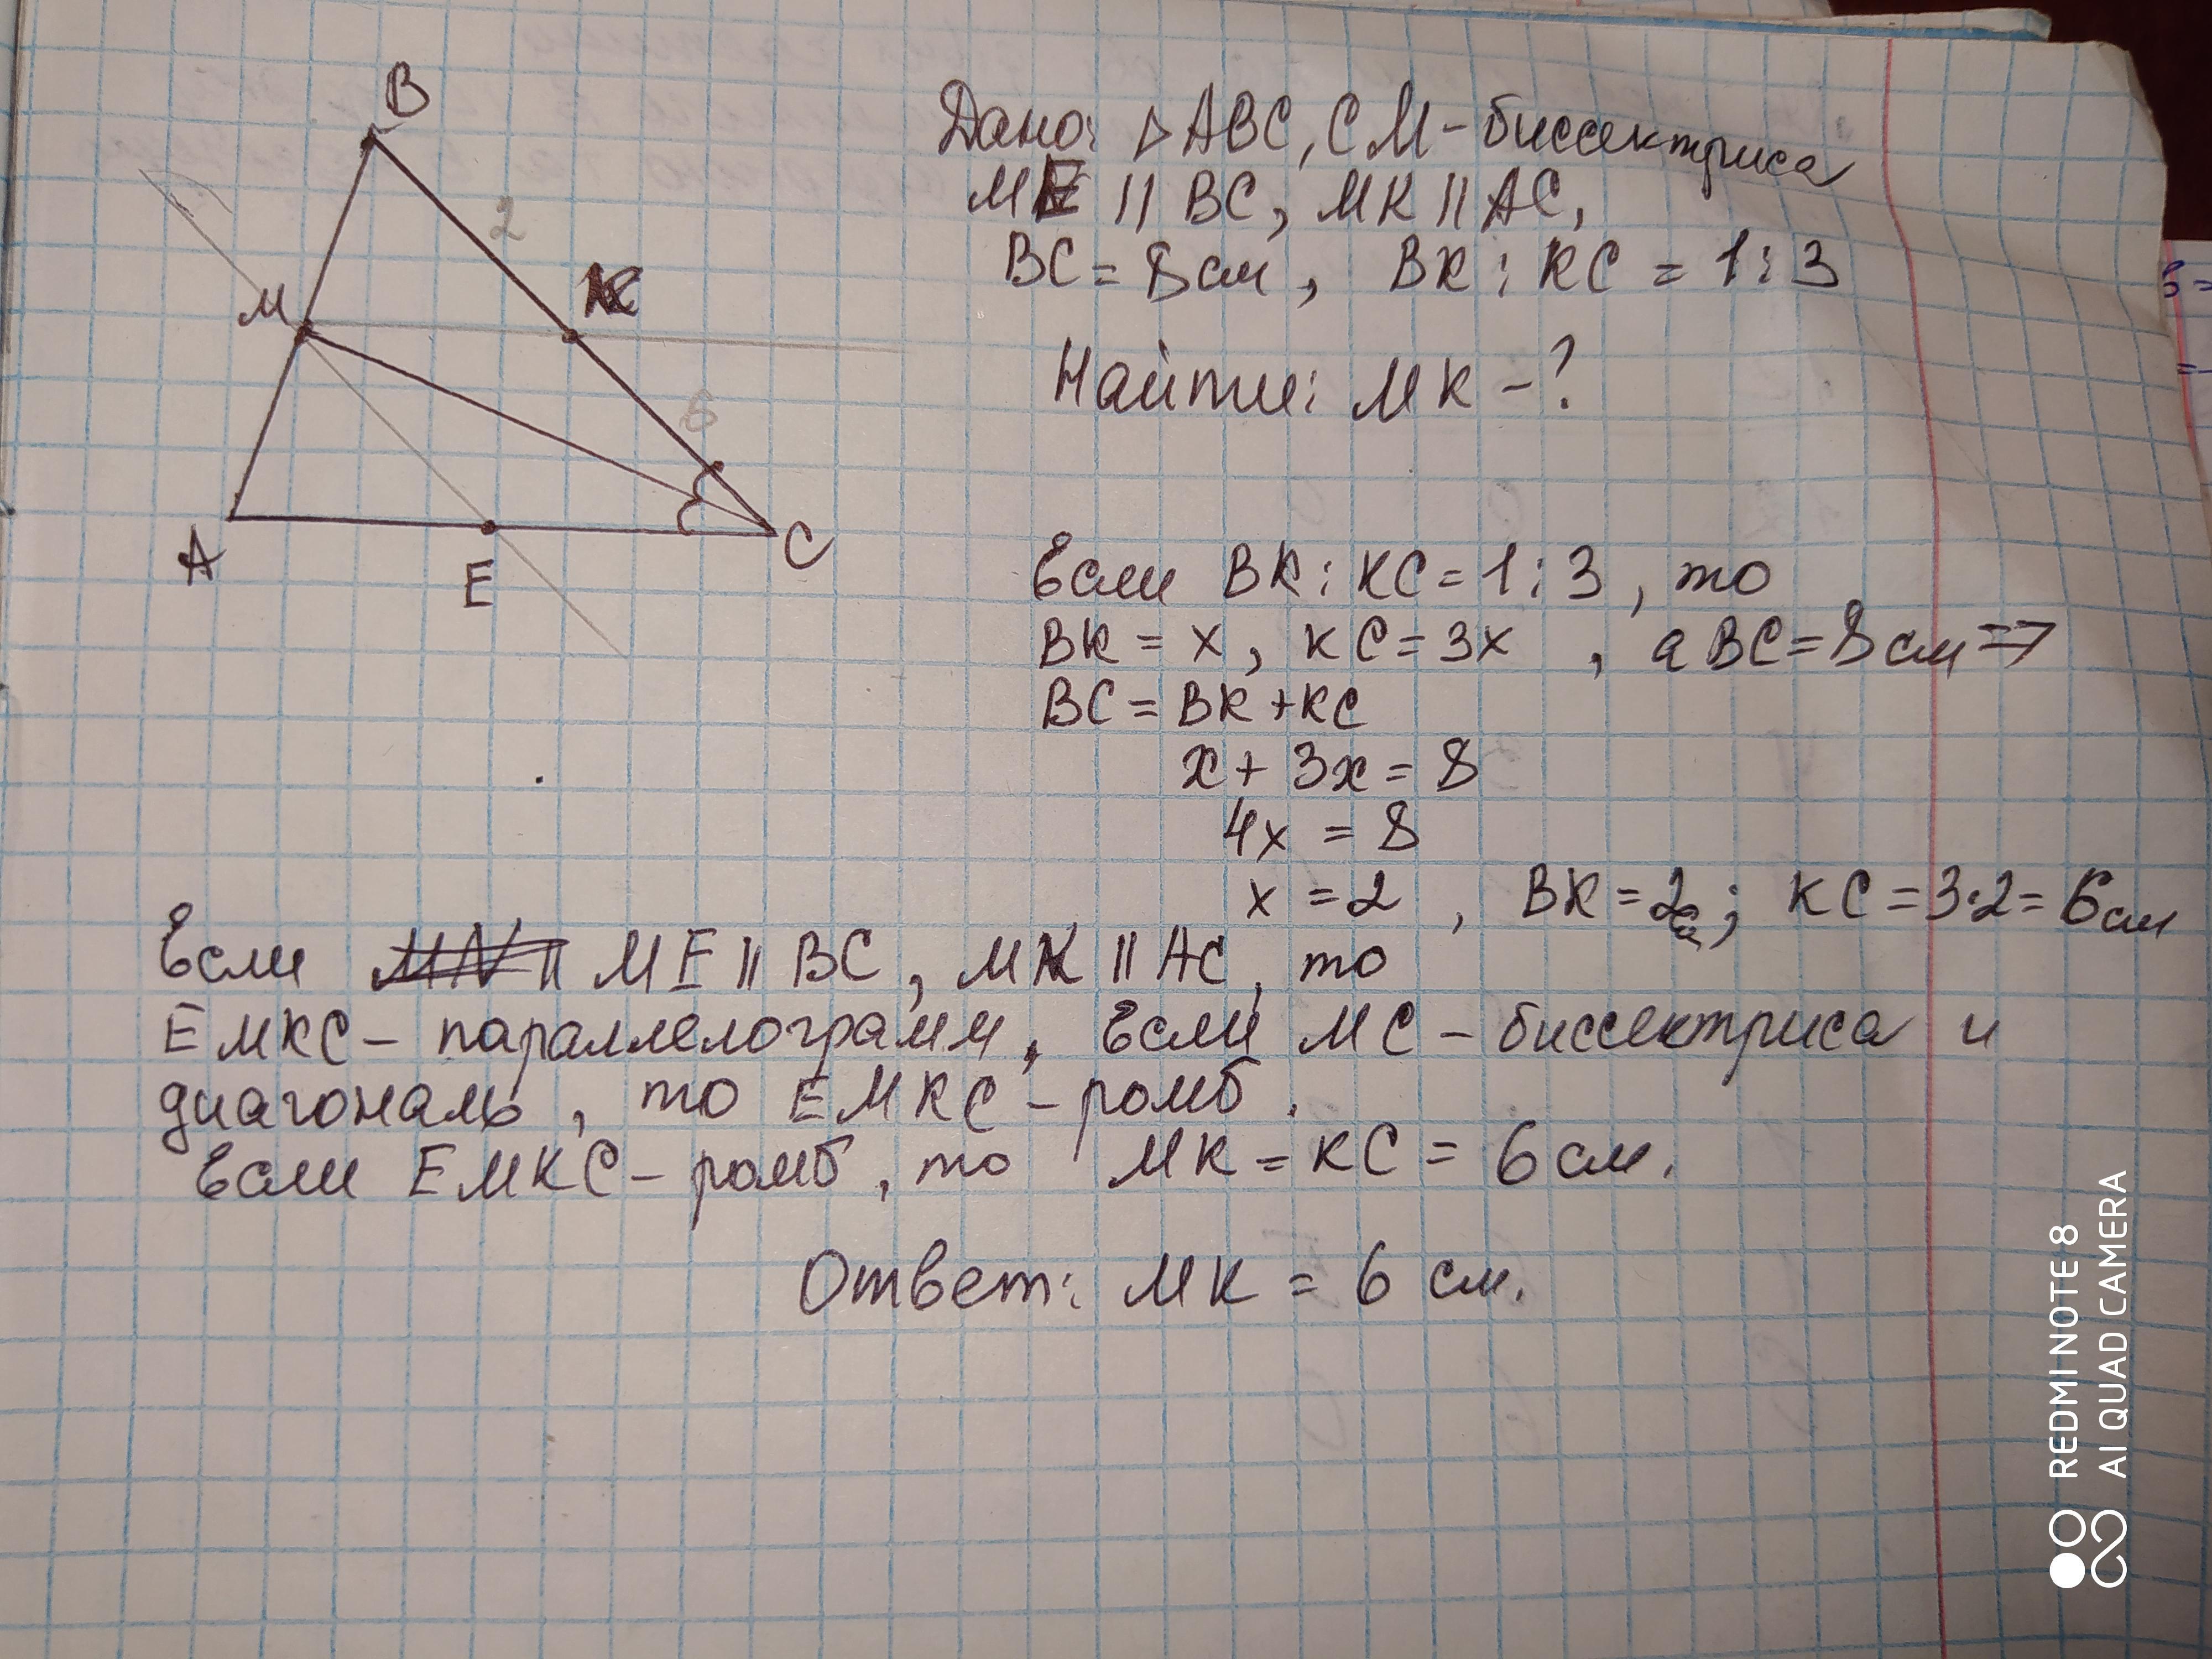 B
2
K
M
6
A
E
C
Дано: ▷ ABC, CM - биссектриса
ME || BC, MK || AC,
BC = 8 см, BK : KC = 1 : 3
Найти: MK - ?
Если BK : KC = 1 : 3, то
BK = x, KC = 3x, а BC = 8 см =>
BC = BK + KC
x + 3x = 8
4x = 8
x = 2, BK = 2 см; KC = 3·2 = 6 см
Если MN || ME || BC, MK || AC, то
EMKC - параллелограмм, Если MC - биссектриса и
диагональ, то EMKC - ромб.
Если EMKC - ромб, то MK = KC = 6 см.
Ответ: MK = 6 см.
REDMI NOTE 8
AI QUAD CAMERA